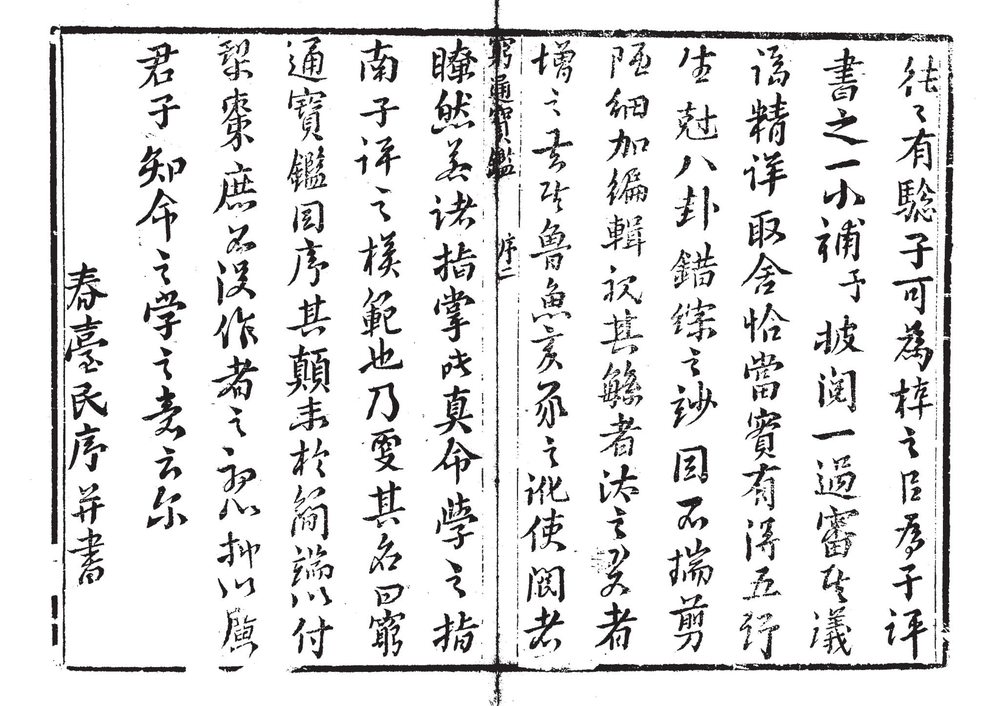 往々有驗子可為梓之以為子評
書之一小補予披閱一過審其議
論精詳取舍恰當實有得五行
生尅八卦錯綜之妙因不揣剪
陋細加編輯視其繇者汰之畧者
增之去其魯魚亥豕之訛使閱者
窮通寶鑑 序二
瞭然若諸指掌此真命學之指
南子評之模範也乃更其名曰窮
通寶鑑因序其顛末於簡端以付
棃棗庶不沒作者之初心抑以廣
君子知命之学之意云尔
春臺氏序并書